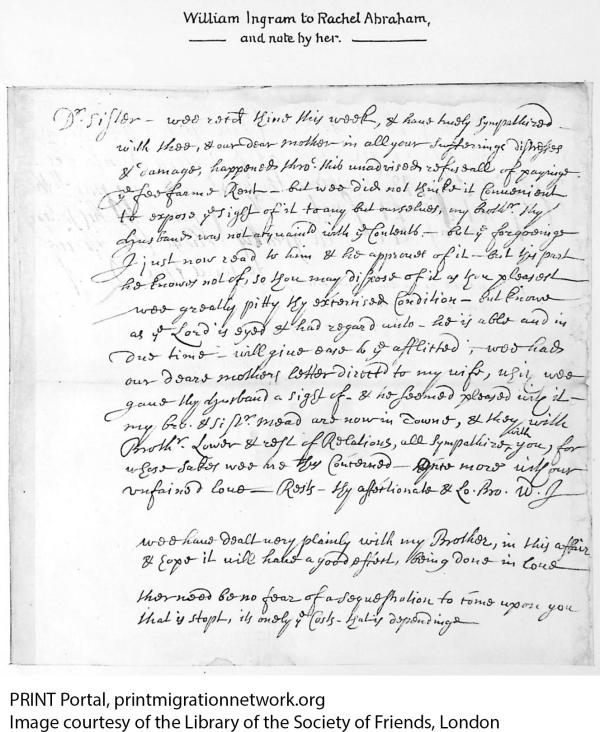 William Ingram to Rachel Abraham,
and note by her.
Dr. Sister – wee recd thine this week, & have truely Sympathized
with thee, & our dear mother in all your Sufferings distresses
& damage, happened thro' this unadvised refuseall of payinge
ye fee farme Rent – but wee did not thinke it Convenient
to expose ye sight of it to any but ourselves, my brothr. thy
husband was not acquainted with ye Contents – but ye forgoeinge
I just now read to him & he approves of it – but this part
he knows not of, so thou may dispose of it as thou pleasest
wee greatly pitty thy exercised Condition – but knowe
as ye Lord is eyed & had regard unto – he is able and in
due time – will give ease to ye afflicted, wee had
our deare mothers letter directd to my wife, which wee
gave thy husband a sight of – & he seemed pleased with it –
my bro. & sistr. mead are now in Towne, & they with
Brothr. Lower & rest of Relations, all Sympathize with you, for
whose sakes wee are thus Concerned – Once more with our
unfained love – Rests – thy affectionate & Lo. Bro. W. I
wee have dealt very plainly with my Brother, in this affair
& hope it will have a good effect, being done in love
ther need be no fear of a sequestration to come upon you
that is stopt, its onely ye Costs – that is dependinge
PRINT Portal, printmigrationnetwork.org
Image courtesy of the Library of the Society of Friends, London